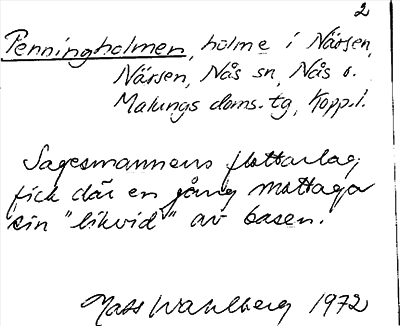 2
Penningholmen, holme i Närsen,
Närsen, Nås sn, Nås o.
Malungs doms. tg, Kopp.l.
Sagesmannens flottarlag
fick där en gång mottaga
sin "likvid" av basen.
Mats Wahlberg 1972